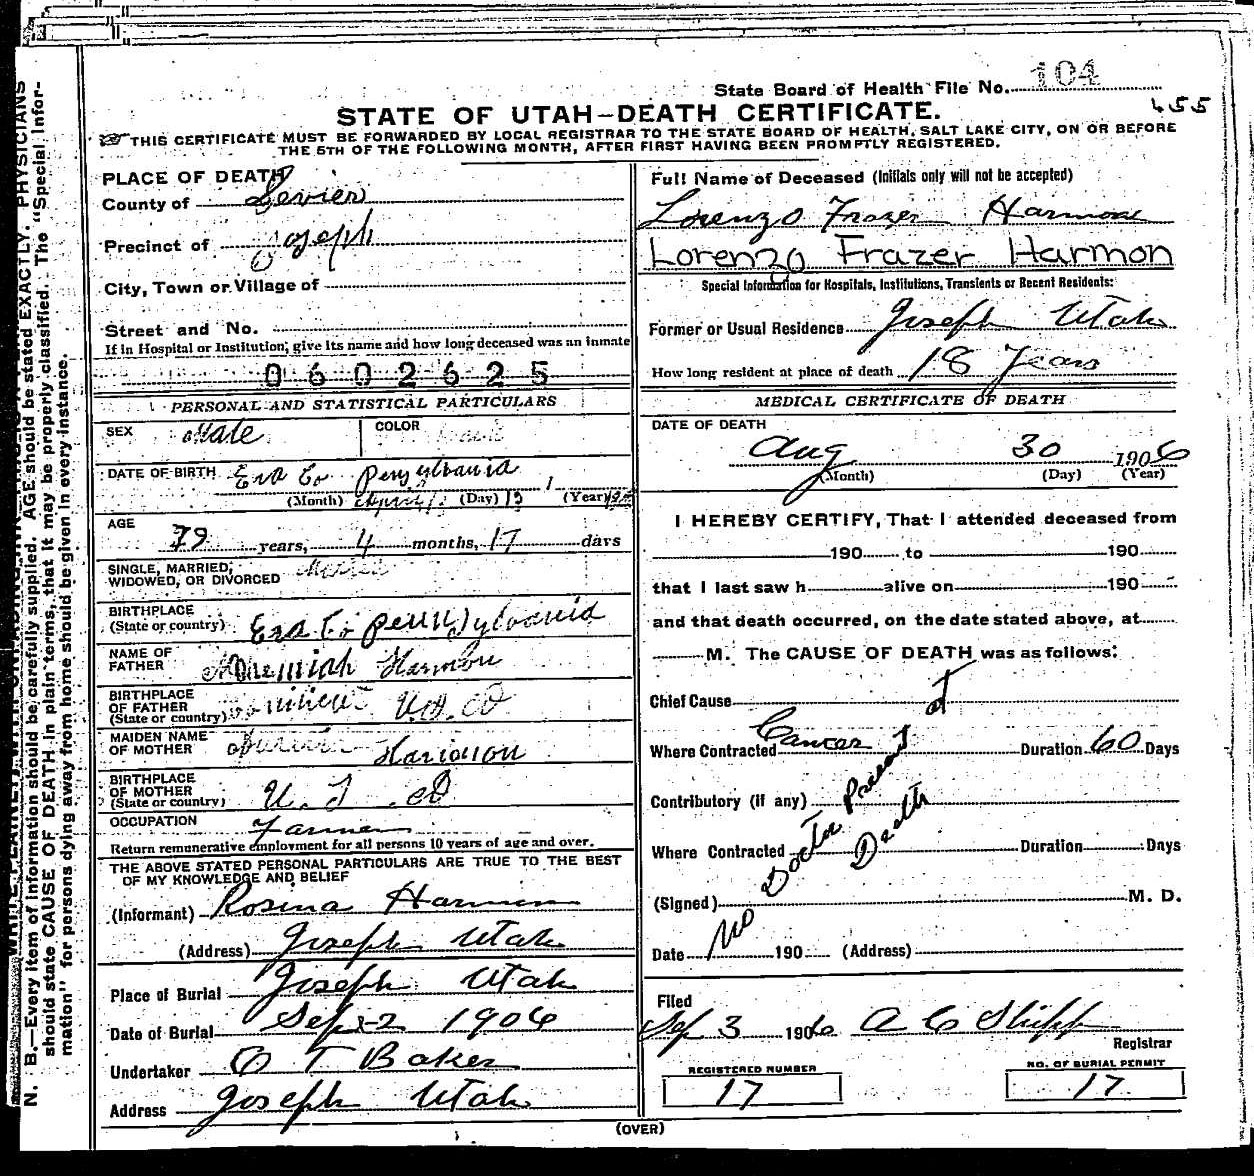 State Board of Health File No. 104
455
STATE OF UTAH-DEATH CERTIFICATE.
THIS CERTIFICATE MUST BE FORWARDED BY LOCAL REGISTRAR TO THE STATE BOARD OF HEALTH, SALT LAKE CITY, ON OR BEFORE
THE 5TH OF THE FOLLOWING MONTH, AFTER FIRST HAVING BEEN PROMPTLY REGISTERED.
PLACE OF DEATH
County of Sevier
Precinct of Joseph
City, Town or Village of
Street and No.
If in Hospital or Institution, give its name and how long deceased was an inmate
0602625
PERSONAL AND STATISTICAL PARTICULARS
SEX Male COLOR
DATE OF BIRTH
(Month) April (Day) 13 (Year)
AGE
79 years, 4 months, 17 days
SINGLE, MARRIED,
WIDOWED, OR DIVORCED
BIRTHPLACE
(State or country)
NAME OF
FATHER Harmon
BIRTHPLACE
OF FATHER
(State or country)
MAIDEN NAME
OF MOTHER
BIRTHPLACE
OF MOTHER
(State or country)
OCCUPATION Farmer
Return remunerative employment for all persons 10 years of age and over.
THE ABOVE STATED PERSONAL PARTICULARS ARE TRUE TO THE BEST
OF MY KNOWLEDGE AND BELIEF
(Informant) Rosina Harmon
(Address) Joseph Utah
Place of Burial Joseph Utah
Date of Burial Sep 2 1906
Undertaker O T Baker
Address Joseph Utah
Full Name of Deceased (Initials only will not be accepted)
Lorenzo Frazer Harmon
Lorenzo Frazer Harmon
Special Information for Hospitals, Institutions, Transients or Recent Residents:
Former or Usual Residence Joseph Utah
How long resident at place of death 18 Years
MEDICAL CERTIFICATE OF DEATH
DATE OF DEATH
Aug 30 1906
(Month) (Day) (Year)
I HEREBY CERTIFY, That I attended deceased from
190 to 190
that I last saw h alive on 190
and that death occurred, on the date stated above, at
M. The CAUSE OF DEATH was as follows:
Chief Cause
Cancer
Where Contracted Duration 60 Days
Contributory (if any)
Where Contracted Duration Days
No Doctor Present at
Death
(Signed) M. D.
Date 190 (Address)
Filed
Sep 3 1906 A C Shipp
Registrar
REGISTERED NUMBER
17
NO. OF BURIAL PERMIT
17
(OVER)
N. B.—Every item of information should be carefully supplied. AGE should be stated EXACTLY. PHYSICIANS
should state CAUSE OF DEATH in plain terms, that it may be properly classified. The "Special Infor-
mation" for persons dying away from home should be given in every instance.